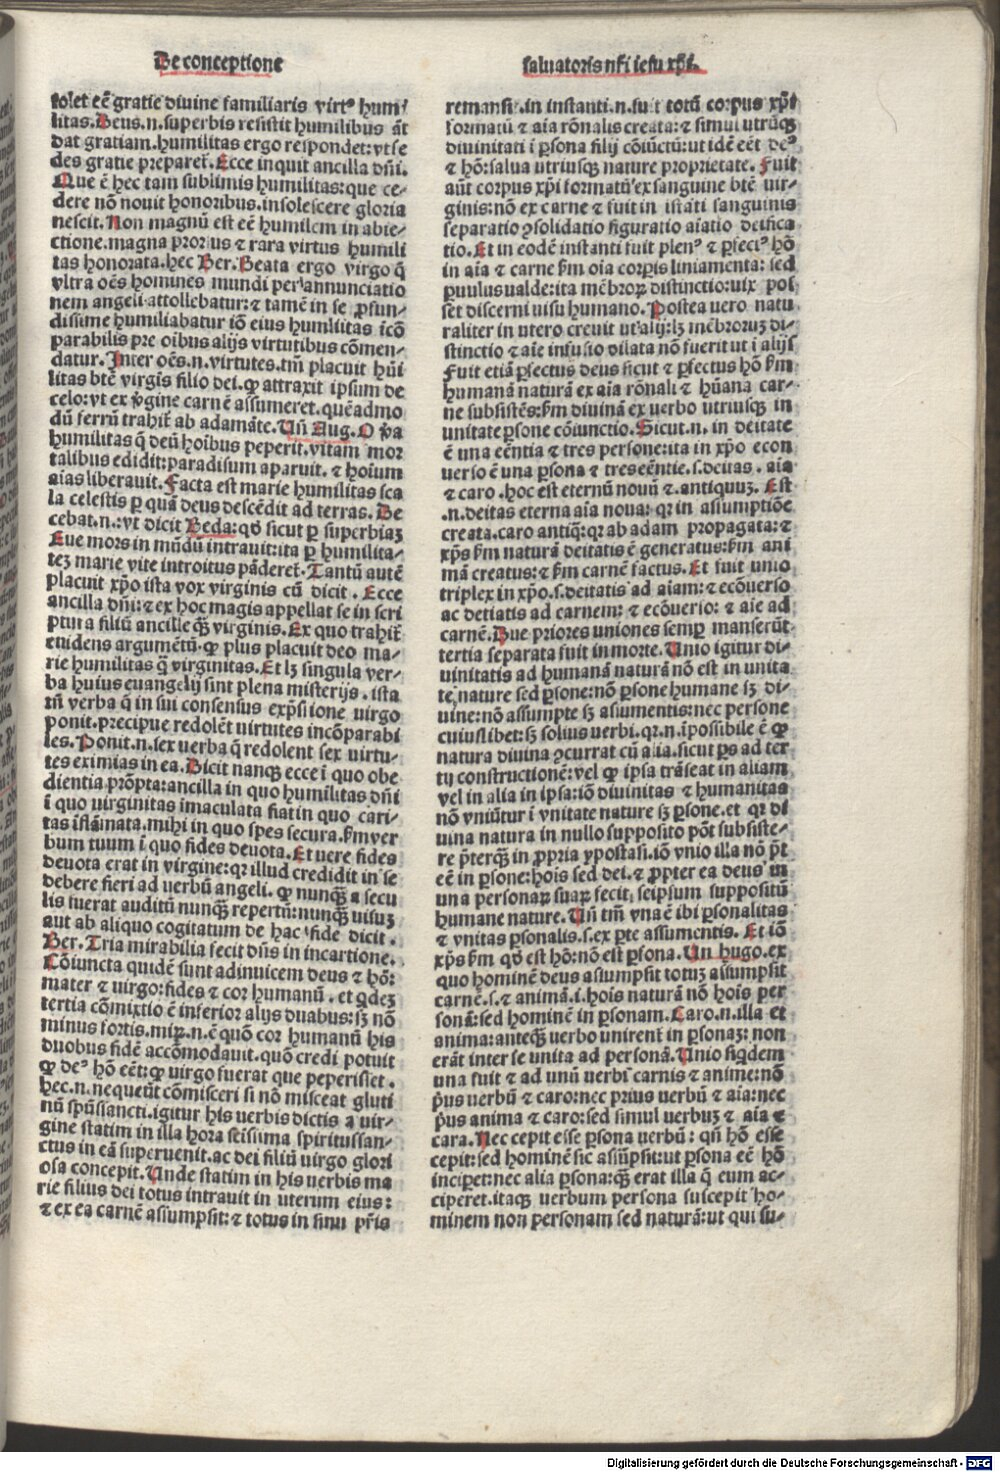 De conceptione
saluatoris nr̄i iesu xp̄i.
solet eē gratie diuine familiaris virtꝰ humi
litas. Deus.n.superbis resistit humilibus āt
dat gratiam. humilitas ergo respondet: vt se
des gratie preparet᷑. Ecce inquit ancilla dn̄i.
Que ē hec tam sublimis humilitas: que ce-
dere nō nouit honoribus. insolescere gloria
nescit. Non magnū est eē humilem in abie-
ctione. magna prorsus ⁊ rara virtus humili
tas honorata. hec Ber. Beata ergo virgo q̄
vltra oēs homines mundi per annunciatio
nem angeli attollebatur: ⁊ tamē in se ꝓfun-
dissime humiliabatur iō eius humilitas īcō
parabilis pre oībus alijs virtutibus cōmen-
datur. Inter oēs.n.virtutes.tm̄ placuit hūi
litas btē virgīs filio dei. ꝙ attraxit ipsum de
celo: vt ex v̓gine carnē assumeret. quēadmo
dū ferrū trahit᷑ ab adamāte. Vn̄ Aug. O v̓a
humilitas q̄ deū hoībus peperit. vitam mor
talibus edidit: paradisum aparuit. ⁊ hoīum
aīas liberauit. Facta est marie humilitas sca
la celestis ꝑ quā deus descēdit ad terras. De
cebat.n.: vt dicit Beda: qd̓ sicut ꝑ superbiaꝫ
Eue mors in mūdū intrauit: ita ꝑ humilita-
teꝫ marie vite introitus pāderet᷑. Tantū autē
placuit xp̄o ista vox virginis cū dicit. Ecce
ancilla dn̄i: ⁊ ex hoc magis appellat se in scri
ptura filiū ancille qꝫ̄ virginis. Ex quo trahit᷑
euidens argumētū. ꝙ plus placuit deo ma-
rie humilitas qꝫ̄ virginitas. Et lꝫ singula ver-
ba huius euangelij sint plena misterijs. ista
tn̄ verba q̄ in sui consensus exp̄ssione virgo
ponit. precipue redolēt virtutes incōparabi
les. Ponit.n.sex verba q̄ redolent sex virtu-
tes eximias in ea. Dicit nanqꝫ ecce ī quo obe
dientia prōpta: ancilla in quo humilitas dn̄i
ī quo virginitas īmaculata fiat in quo cari-
tas īflāmata. mihi in quo spes secura. ẜm ver
bum tuum ī quo fides deuota. Et uere fides
deuota erat in virgine: qr illud credidit in se
debere fieri ad uerbū angeli. ꝙ nunqꝫ̄ a secu
lis fuerat auditū nunqꝫ̄ repertū: nunqꝫ̄ uisuꝫ
aut ab aliquo cogitatum de hac fide dicit.
Ber. Tria mirabilia fecit dn̄s in incartione.
Cōiuncta quidē sunt adinuicem deus ⁊ hō:
mater ⁊ virgo: fides ⁊ cor humanū. et qdeꝫ
tertia cōmixtio ē inferior alijs duabus: sꝫ nō
minus fortis. miꝝ.n.ē quō cor humanū his
duobus fidē accōmodauit. quō credi potuit
ꝙ deꝰ hō eēt: ꝙ virgo fuerat que peperisset.
hec.n.nequeūt cōmisceri si nō misceat gluti
nū spūssancti. igitur his uerbis dictis a vir-
gine statim in illa hora scissima spiritussan-
ctus in eā superuenit. ac dei filiū uirgo glori
osa concepit. Unde statim in his uerbis ma
rie filius dei totus intrauit in uterum eius:
⁊ ex ea carnē assumpsit: ⁊ totus in sinu pr̄is
remansit. in instanti.n.fuit totū corpus xp̄i
formatū ⁊ aīa rōnalis creata: ⁊ simul utrūqꝫ
diuinitati ī ꝑsona filij cōiūctū: ut idē eēt deꝰ
⁊ hō: salua utriusqꝫ nature proprietate. Fuit
aūt corpus xp̄i formatū ex sanguine btē uir-
ginis: nō ex carne ⁊ fuit in īstāti sanguinis
separatio ꝯsolidatio figuratio aīatio deifica
tio. Et in eodē instanti fuit plenꝰ ⁊ ꝑfectꝰ hō
in aīa ⁊ carne ẜm oīa corꝑis liniamenta: sed
ꝑuulus ualde: ita mēbroꝝ distinctio: uix pos
set discerni uisu humano. Postea uero natu
raliter in utero creuit ut alij: lꝫ mēbroruꝫ di-
stinctio ⁊ aīe infusio dilata nō fuerit ut ī alijs
Fuit etiā ꝑfectus deus sicut ⁊ ꝑfectus hō ẜm
humanā naturā ex aīa rōnali ⁊ hūana car-
ne subsistēs: ẜm diuinā ex uerbo utriusqꝫ in
unitate ꝑsone cōiunctio. Sicut.n. in deitate
ē una eēntia ⁊ tres persone: ita in xp̄o econ
uerso ē una ꝑsona ⁊ tres eēntie.s.deitas. aīa
⁊ caro. hoc est eternū nouū ⁊ antiquuꝫ. Est
.n.deitas eterna aīa noua: qr in assumptiōe
creata. caro antiq̄: qr ab adam propagata: ⁊
xp̄s ẜm naturā deitatis ē generatus: ẜm ani
mā creatus: ⁊ ẜm carnē factus. Et fuit unio
triplex in xp̄o.s.deitatis ad aīam: ⁊ ecōuerso
ac deitatis ad carnem: ⁊ ecōuerso: ⁊ aīe ad
carnē. Due priores uniones semꝑ manserūt
tertia separata fuit in morte. Unio igitur di-
uinitatis ad humanā naturā nō est in unita
te nature sed ꝑsone: nō ꝑsone humane sꝫ di-
uine: nō assumpte sꝫ assumentis: nec persone
cuiuslibet: sꝫ solius verbi. qr.n.īpossibile ē ꝙ
natura diuina ꝯcurrat cū alia. sicut ꝑs ad ter
tij constructionē: vel ꝙ ipsa trāseat in aliam
vel in alia in ipsa: iō diuinitas ⁊ humanitas
nō vniūtur ī vnitate nature sꝫ ꝑsone. et qr di
uina natura in nullo supposito pōt subsiste-
re p̄terqꝫ̄ in ꝓpria ypostasi. iō vnio illa nō p̄t
eē in ꝑsone: hoīs sed dei. ⁊ ꝓpter ea deus in
una personaꝝ suaꝝ fecit, seipsum suppositū
humane nature. Un̄ tm̄ vna ē ibi ꝑsonalitas
⁊ vnitas ꝑsonalis.s.ex ꝑte assumentis. Et iō
xp̄s ẜm qd̓ est hō: nō est ꝑsona. Un hugo. ex
quo hominē deus assumpsit totuꝫ assumpsit
carnē.s.⁊ animā.i.hoīs naturā nō hoīs per
sonā: sed hominē in ꝑsonam. Caro.n.illa et
anima: anteqꝫ̄ uerbo unirent᷑ in ꝑsonaꝫ: non
erāt inter se unita ad personā. Unio siqdem
una fuit ⁊ ad unū uerbi carnis ⁊ anime: nō
p̓us uerbū ⁊ caro: nec prius uerbū ⁊ aīa: nec
p̓us anima ⁊ caro: sed simul uerbuꝫ ⁊ aīa ⁊
cara. Nec cepit esse ꝑsona uerbū: qn̄ hō esse
cepit: sed hominē sic assūpsit: ut ꝑsona eē hō
inciꝑet: nec alia ꝑsona: qꝫ̄ erat illa q̄ eum ac-
ciperet. itaqꝫ uerbum persona suscepit ho-
minem non personam sed naturā: ut qui su-
Digitalisierung gefördert durch die Deutsche Forschungsgemeinschaft - DFG